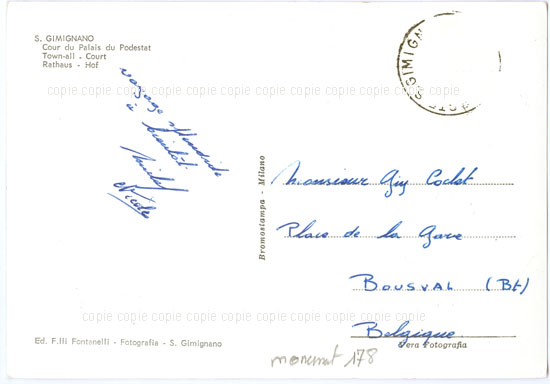 S. GIMIGNANO
Cour du Palais du Podestat
Town-all - Court
Rathaus - Hof
voyage splendide
à bientôt
Nicole
Bromostampa - Milano
S. GIMIGN
Monsieur Guy Coclet
Place de la Gare
BOUSVAL (Bt)
Belgique
Ed. F.lli Fontanelli - Fotografia - S. Gimignano
Vera Fotografia
monument 178
copie copie copie copie copie copie copie
copie copie copie copie copie copie copie
copie copie copie copie copie copie copie